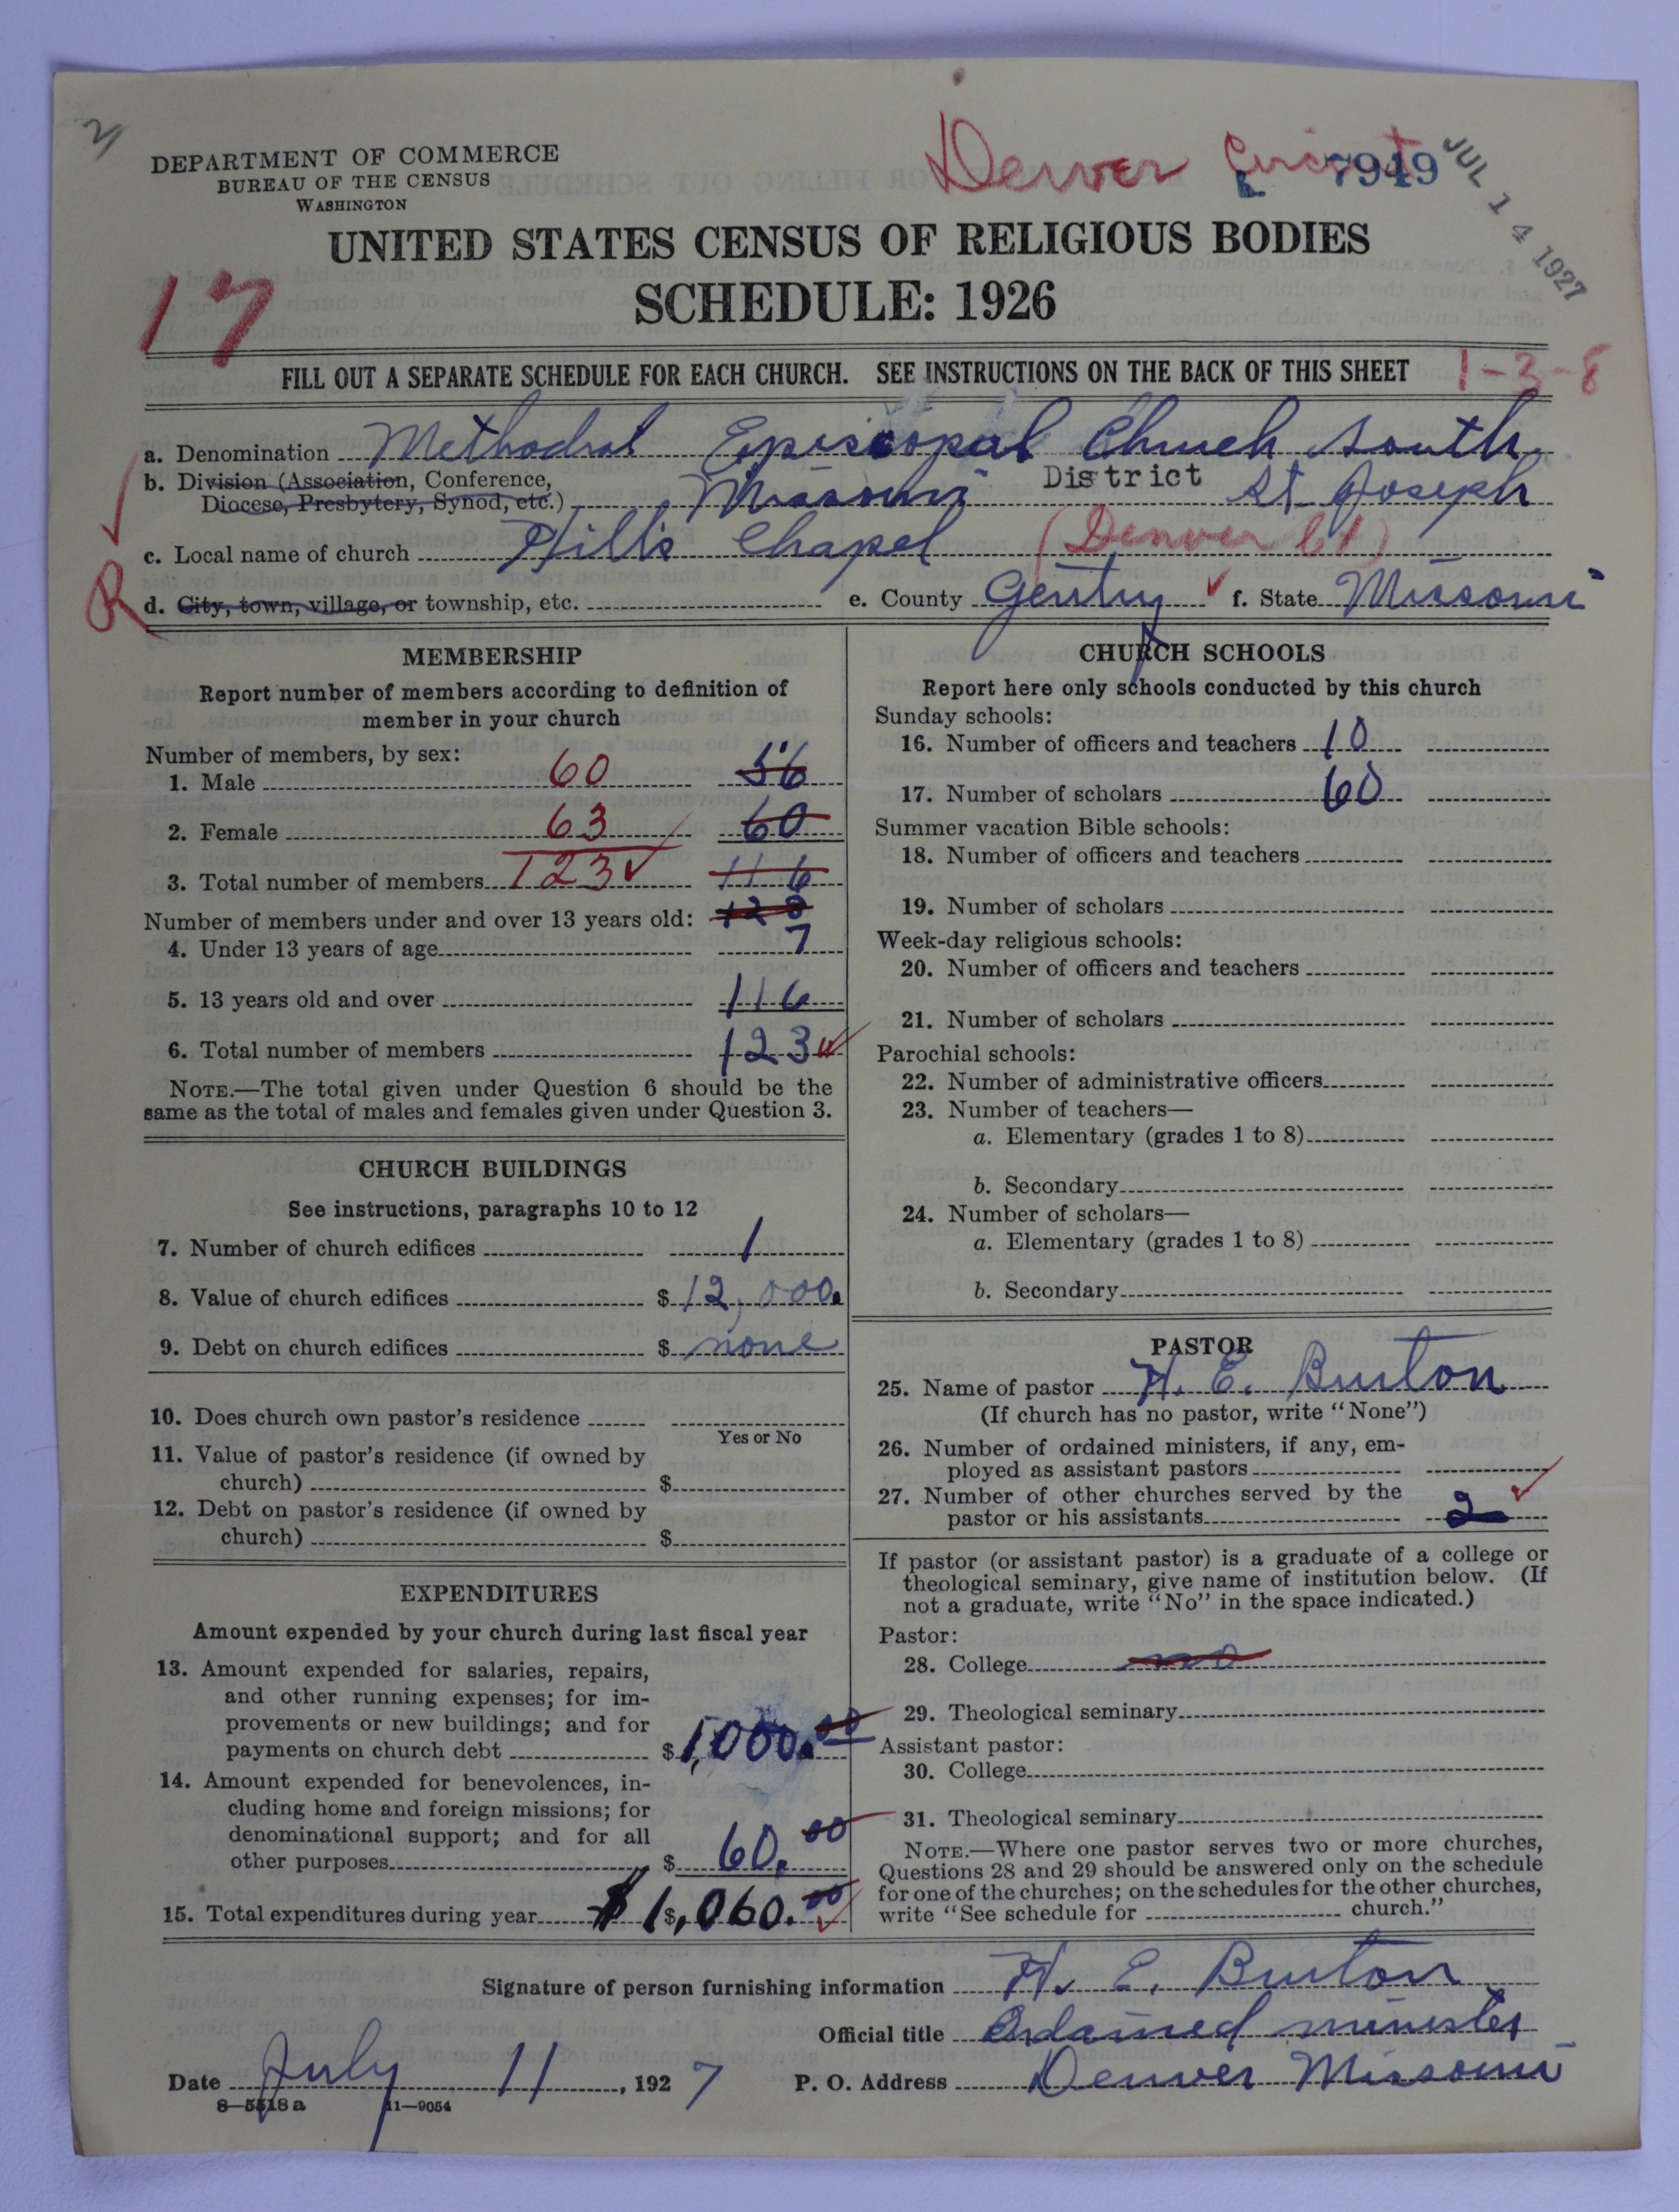 2/
DEPARTMENT OF COMMERCE
BUREAU OF THE CENSUS
WASHINGTON
Denver Circuit
7949
JUL 14 1927
UNITED STATES CENSUS OF RELIGIOUS BODIES
SCHEDULE: 1926
17
FILL OUT A SEPARATE SCHEDULE FOR EACH CHURCH. SEE INSTRUCTIONS ON THE BACK OF THIS SHEET
1-3-8
a. Denomination Methodist Episcopal Church South
b. Division (Association, Conference, Diocese, Presbytery, Synod, etc.) Missouri District St Joseph
c. Local name of church Hill's Chapel (Denver Ct)
R d. City, town, village, or township, etc. e. County Gentry f. State Missouri
MEMBERSHIP
Report number of members according to definition of
member in your church
Number of members, by sex:
1. Male 60 56
2. Female 63 60
3. Total number of members 123 116
Number of members under and over 13 years old: 123
4. Under 13 years of age 7
5. 13 years old and over 116
6. Total number of members 123
NOTE.—The total given under Question 6 should be the
same as the total of males and females given under Question 3.
CHURCH BUILDINGS
See instructions, paragraphs 10 to 12
7. Number of church edifices 1
8. Value of church edifices $ 12,000.
9. Debt on church edifices $ none
10. Does church own pastor's residence
Yes or No
11. Value of pastor's residence (if owned by
church) $
12. Debt on pastor's residence (if owned by
church) $
EXPENDITURES
Amount expended by your church during last fiscal year
13. Amount expended for salaries, repairs,
and other running expenses; for im-
provements or new buildings; and for
payments on church debt $ 1,000.00
14. Amount expended for benevolences, in-
cluding home and foreign missions; for
denominational support; and for all
other purposes $ 60.00
15. Total expenditures during year $ 1$,060.00
CHURCH SCHOOLS
Report here only schools conducted by this church
Sunday schools:
16. Number of officers and teachers 10
17. Number of scholars 60
Summer vacation Bible schools:
18. Number of officers and teachers
19. Number of scholars
Week-day religious schools:
20. Number of officers and teachers
21. Number of scholars
Parochial schools:
22. Number of administrative officers
23. Number of teachers—
a. Elementary (grades 1 to 8)
b. Secondary
24. Number of scholars—
a. Elementary (grades 1 to 8)
b. Secondary
PASTOR
25. Name of pastor H. E. Burton
(If church has no pastor, write "None")
26. Number of ordained ministers, if any, em-
ployed as assistant pastors
27. Number of other churches served by the
pastor or his assistants 2
If pastor (or assistant pastor) is a graduate of a college or
theological seminary, give name of institution below. (If
not a graduate, write "No" in the space indicated.)
Pastor:
28. College no
29. Theological seminary
Assistant pastor:
30. College
31. Theological seminary
NOTE.—Where one pastor serves two or more churches,
Questions 28 and 29 should be answered only on the schedule
for one of the churches; on the schedules for the other churches,
write "See schedule for church."
Signature of person furnishing information H. E. Burton
Official title Ordained minister
Date July 11, 1927 P. O. Address Denver Missouri
8—5518 a 11—9054